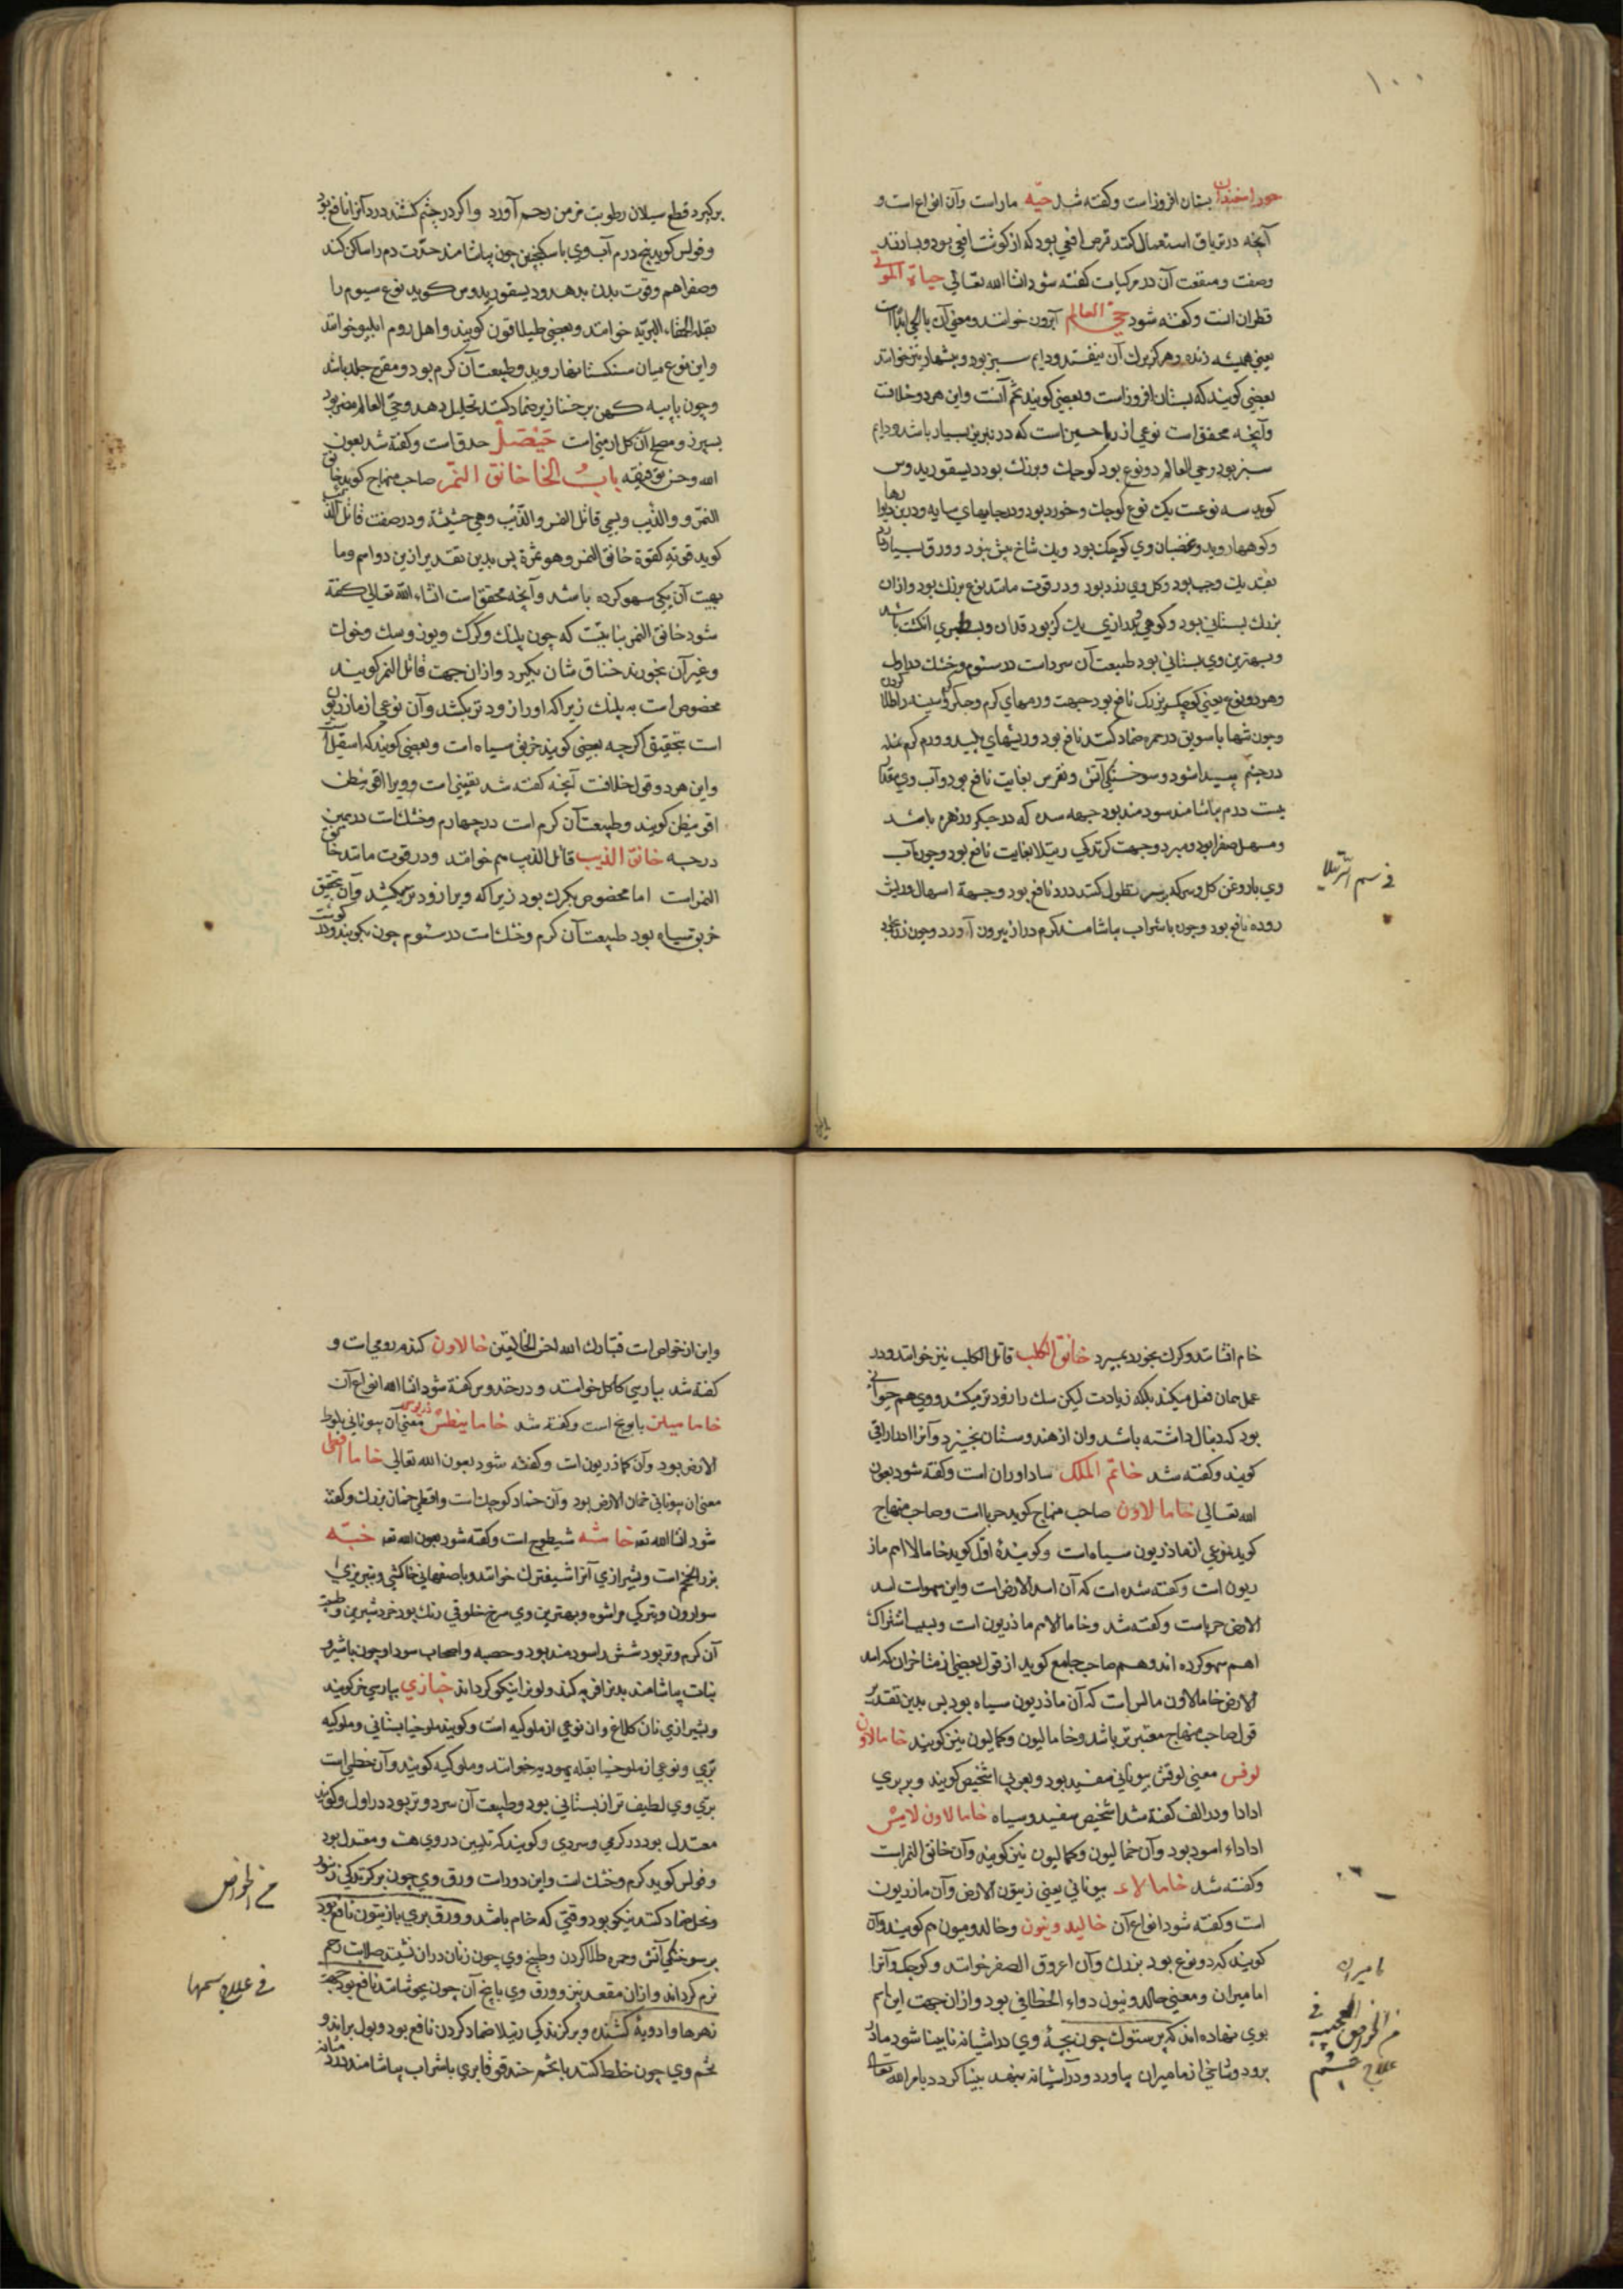 ۱۰۰
بستان افروزاست وکفته شد حیّه ماراست وآن انواع است و
آنچه درتریاق استعمال کنند قرص افعی بود که ازکوشت افعی بود وبیارند
وصفت ومنفعت آن درمرکبات کفته شود انشا الله تعالی حیاة الموتی
قطران است وکفته شود حیّ العالم آبرون خوانند ومعنی آن بالحی ابدا است
یعنی همیشه زنده وهرکز برک آن نیفتد ودایم سبزبود وبیشهار نیزخوانند
بعضی کویند که بستان افروزاست وبعضی کویند تخم آنست واین هردو خلافست
وآنچه محقق است نوعی از ریاحین است که درتبریز بسیار باشد ودایم
سبز بود وحی العالم دو نوع بود کوچک وبزرک بود دیسقوریدوس
کوید سه نوعست یک نوع کوچک وخورد بود ودرجایهای سایه ودربن دیوارها
وکوهها روید وغضبان وی کوچک بود ویک شاخ بیش نبود وورق بسیار دارد
بقدر یک وجب بود وکل وی زرد بود ودرقوت مانند نوع بزرک بود وازان
بزرک بستانی بود وکوهی بود درازی یک کز بود قدان وسطبری انکشت باشد
وبهترین وی بستانی بود طبیعت آن سرداست درسیوم وخشک در اول
وهردو نوع یعنی کوچک وبزرک نافع بود جهت ورمهای کرم وجکر وسینه را طلا کردن
وچون تنها یا باسویق درحمره ضماد کنند نافع بود وریشهای پلید وورم کرم که
درچشم پیدا شود وسوختکی آتش ونقرس بغایت نافع بود وآب وی مقدار
بیست درم بیاشامند سودمند بود جهه سده که درجکر وزهره باشد
ومسهل صفرا بود ومیرد وجهت کزندکی رتیلا بغایت نافع بود وچون آب
وی باروغن کل وسرکه برسر نطول کنند درد نافع بود وجهة اسهال وریش
روده نافع بود وچون باشراب بیاشامند کرم دراز بیرون آورد وچون زن بخود
فی سم الرتیلا
برکیرد قطع سیلان رطوبت مزمن رحم آورد واکر درچشم کشند درد آنرا نافع بود
وفولس کوید پنج درم آب وی باسکنجبین چون بیاشامند حدّت دم را ساکن کند
وصفرا هم وقوت بدن بدهد ودیسقوریدوس کوید نوع سیوم را
بقلة الحمقاء البریّه خوانند وبعضی طیلافون کویند واهل روم ایلیبو خوانند
واین نوع میان سنکستانها روید وطبیعت آن کرم بود ومقرح جلد باشد
وچون باپیه کهن برخنازیر ضماد کنند تحلیل دهد وحی العالم مضر بود
بسپرز ومصلح آن کل ارمنی است حیصل حدق است وکفته شد بعون
الله وحسن توفیقه باب الخا خانق النمر صاحب منهاج کوید خانق
النمر والذیب ویسمی قاتل النمر والذئب وهی حشیشة ودرصفت قاتل الذئب
کوید قوته کقوة خانق النمر وهو ثمرة پس بدین تقدیر ازین دو اسم وما
بیت آن یکی سهو کرده باشد وآنچه محقق است انشاء الله تعالی کفته
شود خانق النمر نباتیست که چون پلنک وکرک ویوز وسک وخوک
وغیرآن بخورند خناق شان بکیرد وازان جهت قاتل النمر کویند
مخصوص است به پلنک زیراکه اورا زودتر بکشد وآن نوعی ازماذریون
است بتحقیق اکرچه بعضی کویند خربق سیاه است وبعضی کویند که اسقیل است
واین هردو قول خلافست آنچه کفته شد یقینی است وویرا اقونیطن
اقونیطن کویند وطبیعت آن کرم است درچهارم وخشک است درهمین
درجه خانق الذیب قاتل الذیب هم خوانند ودرقوت مانند خانق
النمراست اما مخصوص بکرک بود زیراکه ویرا زودتر میکشد وآن بتحقیق
خربق سیاه بود طبیعت آن کرم وخشک است درسیوم چون بکوبند ودر کوشت
خام افشانند وکرک بخورد بمیرد خانق الکلب قاتل الکلب نیز خوانند ودر
عمل همان فعل میکند بلکه زیادت لیکن سک را زودتر میکشد ووی هم حیوانی
بود که دنبال داشته باشد وان ازهندوستان خیزد وآنرا اداراقی
کویند وکفته شد خاتم الملک ساداوران است وکفته شود بعون
الله تعالی خامالاون صاحب منهاج کوید حربااست وصاحب منهاج
کوید نوعی ازماذریون سیاه است وکوینده اوّل کوید خامالا اسم ماز
ریون است وکفته شده است که آن اسد الارض است واین سهواست اسد
الارض حرباست وکفته شد وخامالا اسم ماذریون است وبسبب اشتراک
اسم سهو کرده اند وهم صاحب جامع کوید از قول بعضی ازمتاخران که اسد
الارض خامالاون مالس است که آن ماذریون سیاه بود پس بدین تقدیر
قول صاحب منهاج معتبرتر باشد وخامالیون وکمالیون نیز کویند خامالاون
لوقس معنی لوقس بیونانی سفید بود وبعربی اشخیص کویند وبربری
ادادا ودرالف کفته شد اشخیص سفید وسیاه خامالاون لایس
اداداء اسود بود وآن خمالیون وکمالیون نیز کویند وآن خانق النمراست
وکفته شد خامالاء بیونانی یعنی زیتون الارض وآن مازریون
است وکفته شود انواع آن خالیدونیون وخالدومیون هم کویند وآن
کویند که دو نوع بود بزرک وآن اعروق الصفر خوانند وکوچک وآنرا
امامیران ومعنی حالدونیون دواء الخطافی بود وازان جهت این اسم
بوی نهاده اند که پرستوک چون بچهٔ وی درآشیانه نابینا شود مادر
برود وشاخی ازمامیران بیاورد ودرآشیانه بنهد بینا کردد بامرالله تعالی
مامیران
من الخواص العجیبه فی
علاج چشم
واین ازخواص است فتبارک الله احسن الخالقین خالاون کندم رومی است و
کفته شد بپارسی کاکل خوانند ودرخندروس کفته شود انشا الله انواع آن
خاماميلن بابونج است وکفته شد خاماینطس معنی آن بیونانی بلوط
الارض بود وآن کماذریون است وکفته شود بعون الله تعالی خاما اقطی
معنی ان بیونانی خمان الارض بود وآن خماد کوچک است واقطی خمان بزرک وکفته
شود انشا الله تعه خاشه شیطرج است وکفته شود بعون الله تعه خبّه
بزرالخمخم است وبشیرازی آنرا شیفترک خوانند وباصفهانی خاکشی وبتبریزی
سوارون وبترکی مراشوه وبهترین وی سرخ خلوقی رنک بود خرد شیرین وطبیعت
آن کرم وتر بود شش را سودمند بود وحصبه واصحاب سودا وچون باشیر و
نبات بیاشامند بدن را فربه کند ولونرا نیکو کرداند خبازی بپارسی خرکویند
وبشیرازی نان کلاغ وان نوعی ازملوکیه است وکویند ملوخیا بستانی وملوکیه
برّی ونوعی ازملوخیا بقله یهودیه خوانند وملوکیه کویند وآن خطمی است
برّی وی لطیف تر از بستانی بود وطبیعت آن سرد وتر بود دراول وکویند
معتدل بود درکرمی وسردی وکویند که تلیین دروی هست ومعتدل بود
وفولس کوید کرم وخشک است واین دوراست ورق وی چون برکزیدکی زنبور
ونحل ضماد کنند نیکو بود وقتی که خام باشد وورق بری بازیتون نافع بود
برسوختکی آتش وحمره طلا کردن وطبیخ وی چون زنان دران نشینند صلابت رحم
نرم کرداند وازان مقعد نیز وورق وی بابیخ آن چون بجوشانند نافع بود جهت
زهرها وادویهٔ کشنده وبرکزندکی رتیلا ضماد کردن نافع بود وبول براند و
تخم وی چون خلط کنند باتخم خندقوقا بری باشراب بیاشامند درد مثانه
من الخواص
فی علاج سمها